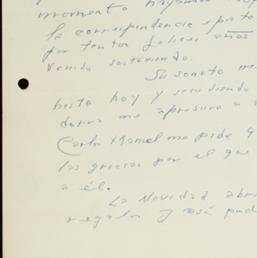 momento hayamos
la correspondencia
por tantos felices años
venido sosteniendo.
Su soneto me
hasta hoy y
me apresuro a
Carlos Manuel me pide q
las gracias por el que
a él.
La Navidad
regalos y